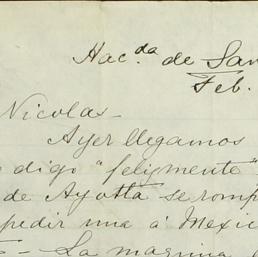 Hac.da de San
Feb.
Nicolas-
Ayer llegamos
digo "felizmente"
de Ayotla se romp
pedir una á Mexic
- La maquina